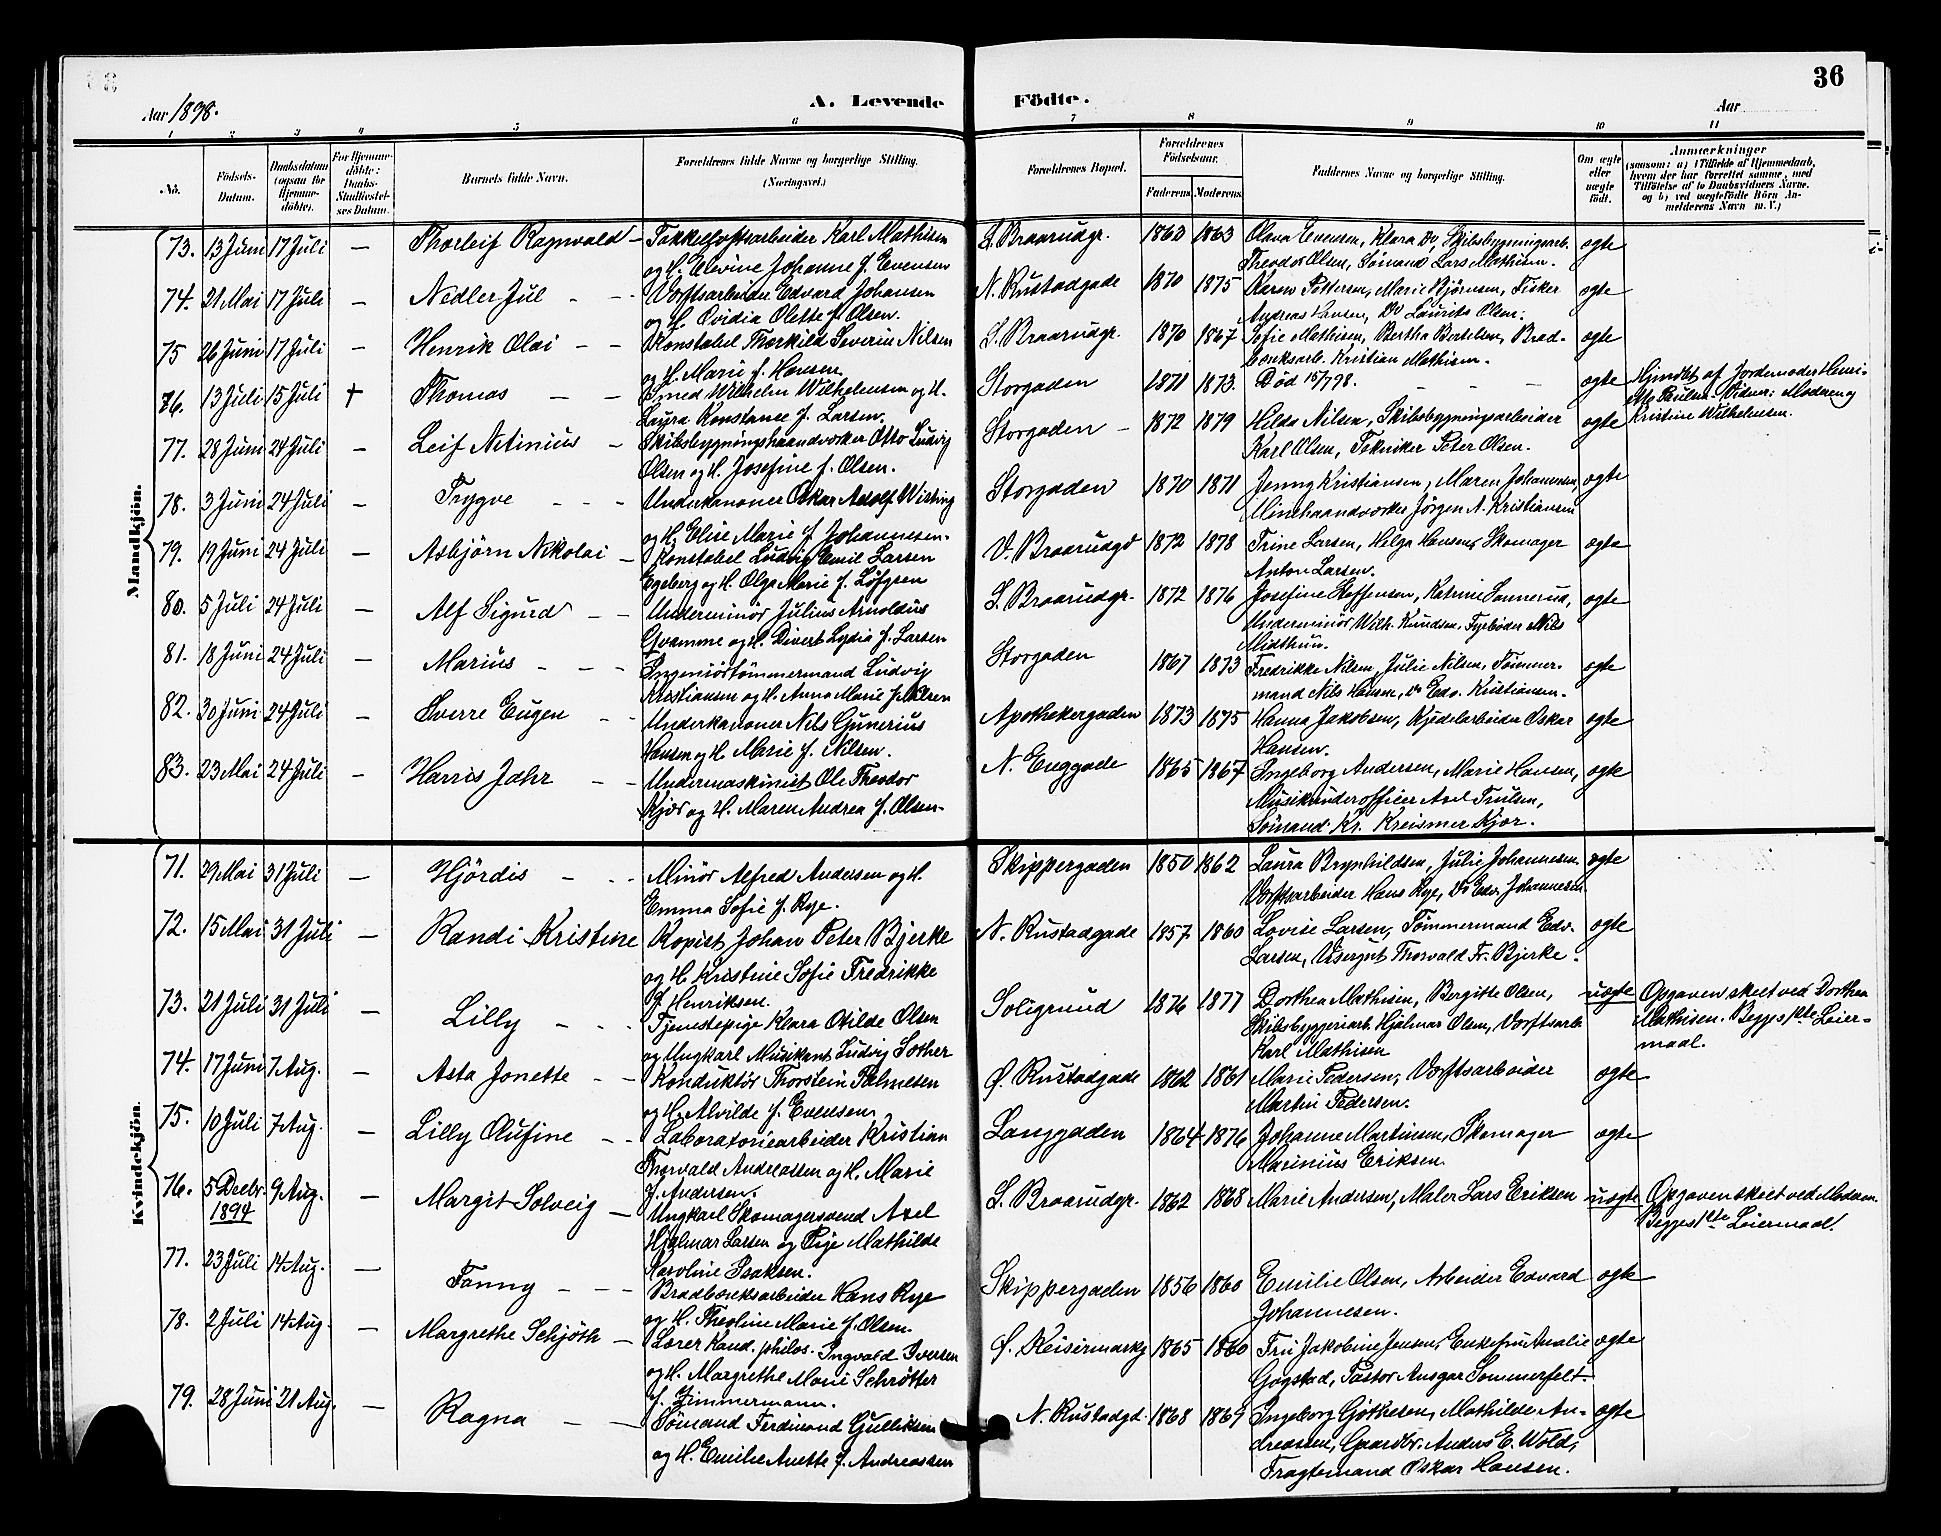 36
Aar 1898.
A. Levende Födte.
Aar
1 2 3 4 5 6 7 8 9 10 11
No.
Födsels-Datum.
Daabsdatum (ogsaa for Hjemmedöbte).
For Hjemmedöbte: Daabs-Stadfæstelses Datum.
Barnets fulde Navn.
Forældrenes fulde Navne og borgerlige Stilling. (Næringsvei.)
Forældrenes Bopæl.
Forældrenes Födselsaar.
Faderens. Moderens.
Faddernes Navne og borgerlige Stilling.
Om ægte eller uægte födt.
Anmærkninger
(saasom: a) i Tilfælde af Hjemmedaab, hvem der har forrettet samme, med Tilföielse af to Daabsvidners Navne, og b) ved uægtefödte Börn Anmelderens Navn m. V.)
Mandkjön.
73. 13 Juni 17 Juli — Thorleif Ragnvald – Takkelloftsarbeider Karl Mathisen
og H. Elevine Johanne f. Evensen
S. Braarudgr. 1863 1863 Olava Evensen, Klara Do, Skibsbygningsarb.
Theodor Olsen, Sömand Lars Mathisen. ægte
74. 21 Mai 17 Juli — Nedler Jul - - Værftsarbeider Edvard Johansen
og H. Ovidia Olette f. Olsen.
N. Rustadgade 1870 1875 Karen Pettersen, Marie Björnsen, Fisker
Andreas Hansen, Do Laurits Olsen. ægte
75 26 Juni 17 Juli — Henrik Olai - - Konstabel Thorkild Severin Nilsen
og H. Marie f. Hansen.
S. Braarudgr. 1870 1867 Sofie Mathisen, Bertha Bertelsen, Brad-
bænksarb. Kristian Mathisen. ægte
76. 13 Juli 15 Juli † Thomas - - Smed Wilhelm Wilhelmsen og H.
Laura Konstance f. Larsen.
Storgaden 1871 1873. Död 15/7 98. - - - ægte
Hjmdbt af Jordemoder Henri-
ette Paulsen. Vidner: Moderen og
Kristine Wilhelmsen.
77. 28 Juni 24 Juli — Leif Antinius - Skibsbygningshaandværker Otto Ludvig
Olsen og H. Josefine f. Olsen.
Storgaden - 1872 1879 Hilda Nilsen, Skibsbygningsarbeider
Karl Olsen, Tekniker Peter Olsen. ægte
78. 3 Juni 24 Juli — Trygve - - - Underkanoner Oskar Adolf Wisting
og H. Elise Marie f. Johannesen.
Storgaden 1870 1871 Jenny Kristiansen, Maren Johannesen,
Minehaandværker Jörgen A. Kristiansen ægte
79. 19 Juni 24 Juli — Asbjörn Nikolai - Konstabel Ludvig Emil Larsen
Egeberg og H. Olga Marie f. Löfgren
V. Braarudgd 1872 1878 Trine Larsen, Helga Hansen, Skomager
Anton Larsen. ægte
80. 5 Juli 24 Juli — Alf Sigurd - - Underminör Julius Arnoldus
Gvamme og H. Divert Lydia f. Larsen
S. Braarudgr. 1872 1876 Josefine Steffensen, Katrine Sannerud,
Underminör Wilh. Knudsen, Fyrböder Nils
Midthun. ægte
81. 18 Juni 24 Juli — Marius - - - Ingeniörtömmermand Ludvig
Kristiansen og H. Anna Marie f. Nilsen
Storgaden 1867 1873 Fredrikke Nilsen, Julie Nilsen, Tömmer-
mand Nils Hansen, Do Edv. Kristiansen. ægte
82. 30 Juni 24 Juli — Sverre Eugen - - Underkanoner Nils Gunerius
Hansen og H. Marie f. Nilsen.
Apothekergaden 1873 1875 Hanna Jakobsen, Kjedelarbeider Oskar
Hansen. ægte
83. 23 Mai 24 Juli — Harris Jahr - - Undermaskinist Ole Theodor
Kjær og H. Maren Andrea f. Olsen.
N. Enggade 1865 1867 Ingeborg Andersen, Marie Hansen,
Musikunderofficer Axel Trulsen,
Sömand Kr. Kreismer Kjær. ægte
Kvindekjön.
71. 29 Mai 31 Juli — Hjördis - - - Minör Alfred Andersen og H.
Emma Sofie f. Rye.
Skippergaden 1850 1862 Laura Brynhildsen, Julie Johannesen
Værftsarbeider Hans Rye, Do Edv. Johannesen ægte
72. 15 Mai 31 Juli — Randi Kristine Kopist Johan Peter Bjerke
og H. Kristine Sofie Fredrikke
f. Henriksen.
N. Rustadgade 1857 1860 Lovise Larsen, Tömmermand Edv.
Larsen, Visergut Thorvald Fr. Bjerke. ægte
73. 21 Juli 31 Juli — Lilly - - - Tjenestepige Klara Otilde Olsen
og Ungkarl Musikant Ludvig Sother
Soligrund 1876 1877 Dorthea Mathisen, Bergitte Olsen,
Skibsbyggeriarb. Hjalmar Olsen, Værftsarb.
Karl Mathisen uægte
Opgaven skeet ved Dorthea
Mathisen. Begges 1ste Leier-
maal.
74. 17 Juni 7 Aug. — Asta Jonette - - Konduktör Thorstein Palmesen
og H. Alvilde f. Evensen.
Ö. Rustadgade 1862 1861 Marie Pedersen, Værftsarbeider
Martin Pedersen. ægte
75. 10 Juli 7 Aug. — Lilly Rufine - - Laboratoriearbeider Kristian
Thorvald Andreassen og H. Marie
f. Andersen.
Langgaden 1864 1876 Johanne Martinsen, Skomager
Marinius Eriksen. ægte
76. 5 Decbr. 1894 9 Aug. — Margit Solveig - Ungkarl Skomagersvend Axel
Hjalmar Larsen og Pige Mathilde
Karoline Isaksen.
S. Braarudgr. 1862 1868 Marie Andersen, Maler Lars Eriksen uægte
Opgaven skeet ved Moderen
Begges 1ste Leiermaal.
77. 23 Juli 14 Aug. — Fanny - - - Bradbænksarbeider Hans Rye
og H. Theoline Marie f. Olsen.
Skippergaden 1856 1860 Emilie Olsen, Arbeider Edvard
Johannesen. ægte
78. 2 Juli 14 Aug. — Margrethe Schjöth - Lærer Kand. philos. Ingvald Iversen
og H. Margrethe Marie Schrötter
f. Zimmermann.
Ö. Keisermarkg 1865 1860 Fru Jakobine Jensen, Enkefru Amalie
Gogstad, Pastor Ansgar Sommerfelt. ægte
79. 28 Juni 21 Aug. — Ragna - - Sömand Ferdinand Gulliksen
og H. Emilie Anette f. Andreassen
N. Rustadgd. 1868 1869 Ingeborg Göthesen, Mathilde An-
dreassen, Gaardbr. Anders E. Wold,
Fragtemand Oskar Hansen. ægte